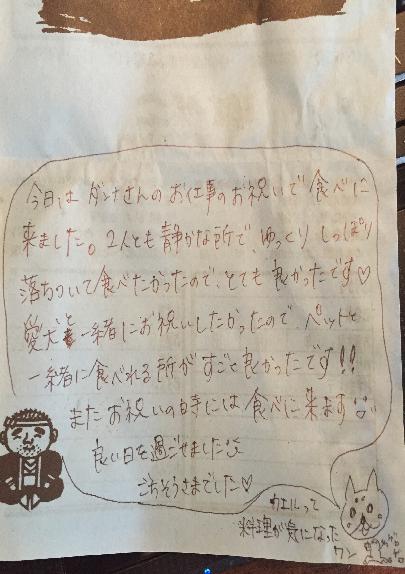 今日は ダンナさんの お仕事の お祝いで 食べに
来ました。2人とも 静かな所で、ゆっくり しっぽり
落ちついて 食べたかったので、とても 良かったです♡
愛犬と 一緒に お祝いしたかったので、ペットと
一緒に食べれる所が すごく良かったです!!
また お祝いの時には 食べに 来ます
良い日を過ごせました
ごちそうさまでした♡
って
料理が気になった
ワン